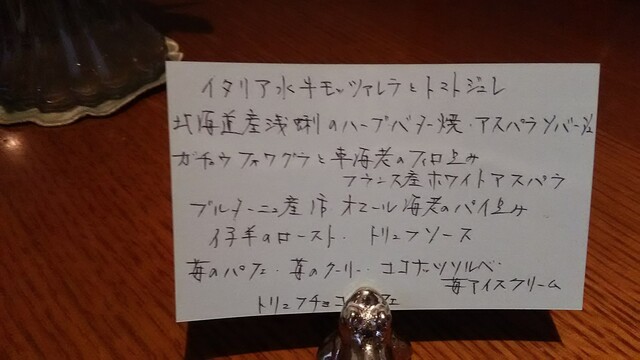 イタリア水牛モッツァレラとトマトジュレ
北海道産浅蜊のハーブバター焼・アスパラソバージュ
ガチョウフォワグラと車海老のフィロ包み
フランス産ホワイトアスパラ
ブルターニュ産 オマール海老のパイ包み
仔羊のロースト・トリュフソース
苺のパフェ・苺のクーリー・ココナッツソルベ・
苺アイスクリーム
トリュフチョコ